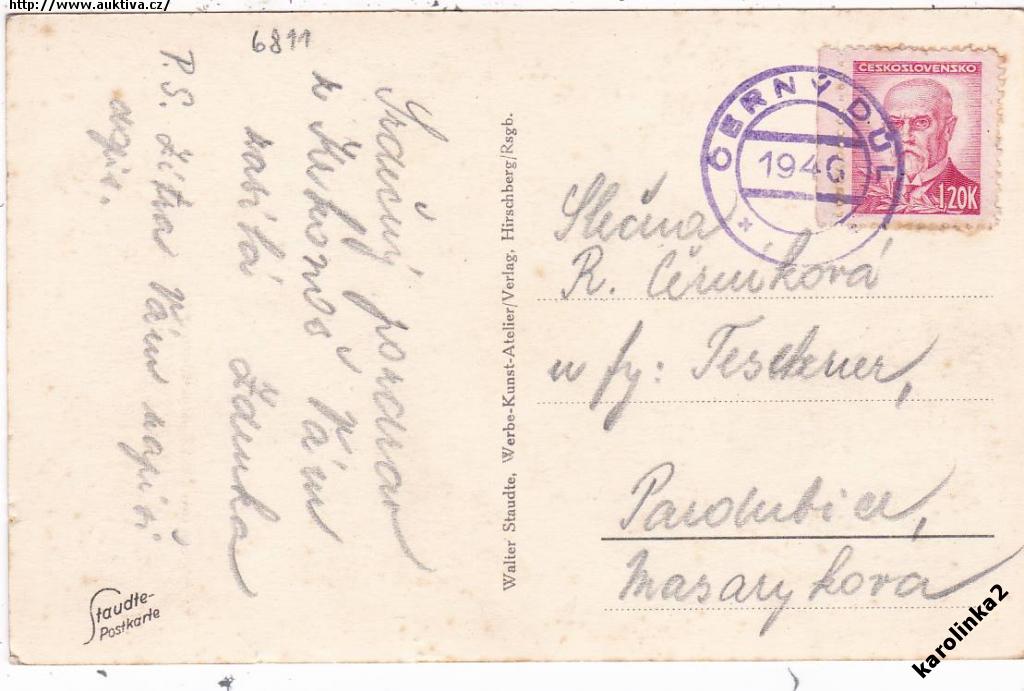 http://www.auktiva.cz/
6811
Srdečný pozdrav
z Krkonoš Vám
zasílá Zdenka
P.S. Zítra Vám napíši
dopis.
Staudte-
Postkarte
Walter Staudte, Werbe-Kunst-Atelier/Verlag, Hirschberg/Rsgb.
ČERNÝ DŮL
1946
ČESKOSLOVENSKO
1,20K
Slečna
R. Černíková
u fy:
Pardubice,
Masarykova
karolinka2